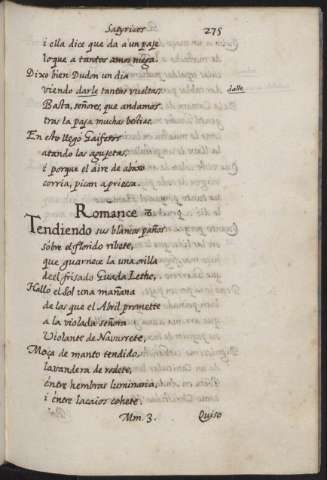 Satyricos 275
i ella dice que da a un paje
lo que a tantos amos niega.
Dixo bien Dudon un dia
viendo darle tantas vueltas, dalle
Basta, señores, que andamos
tras la paja muchas bestias.
En esto llegó Gaiferos
atando las agujetas,
i porque el aire de abaxo
corria, pican apriesa.
Romance
Tendiendo sus blancos paños
sobre el florido ribete,
que guarnece la una orilla
del frisado Guada Lethe,
Hallo el Sol una mañana
de las que el Abril promette
a la violada señora
Violante de Navarrete,
Moça de manto tendido,
lavandera de rodete,
entre hembras luminaria,
i entre lacaios cohete.
Mm 3. Quiso